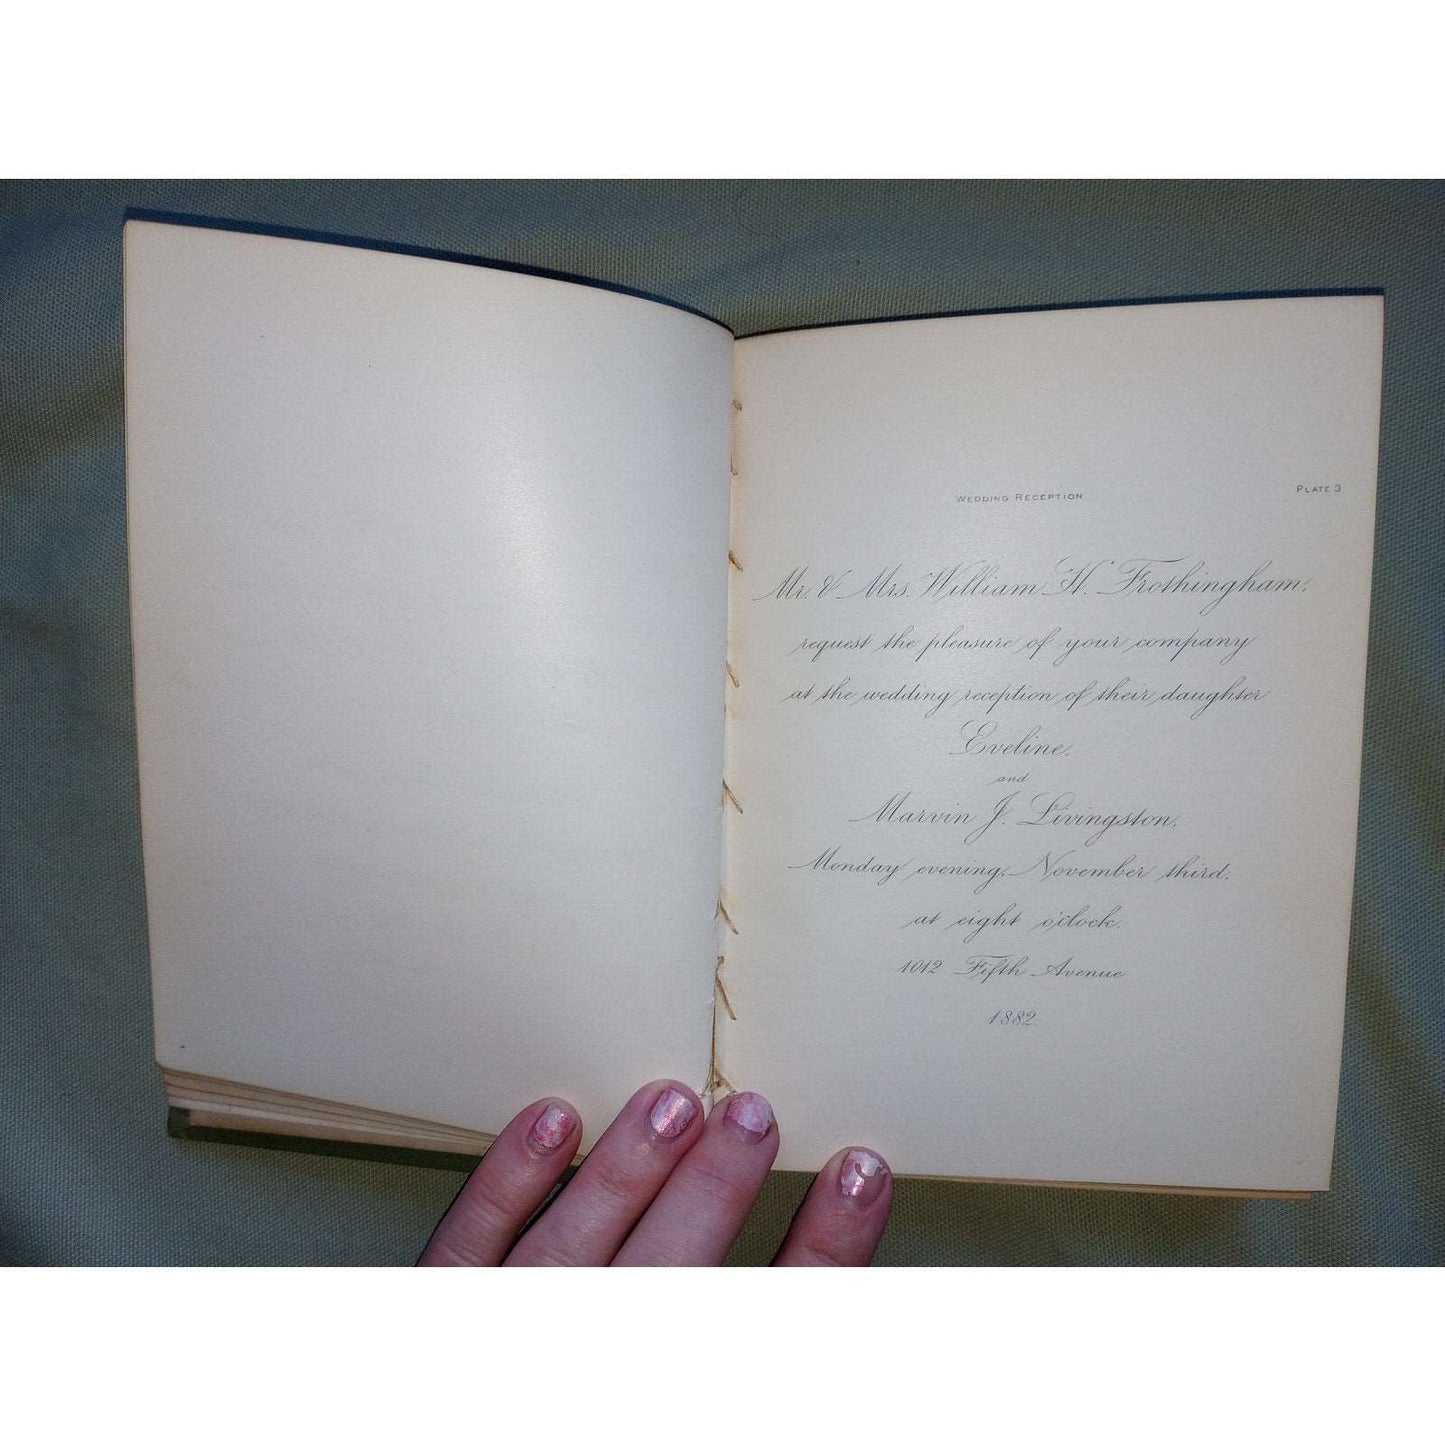 Plate 3
Wedding Reception
Mr. & Mrs. William H. Frothingham,
request the pleasure of your company
at the wedding reception of their daughter
Eveline,
and
Marvin J. Livingston,
Monday evening, November third,
at eight o'clock.
1012 Fifth Avenue
1882